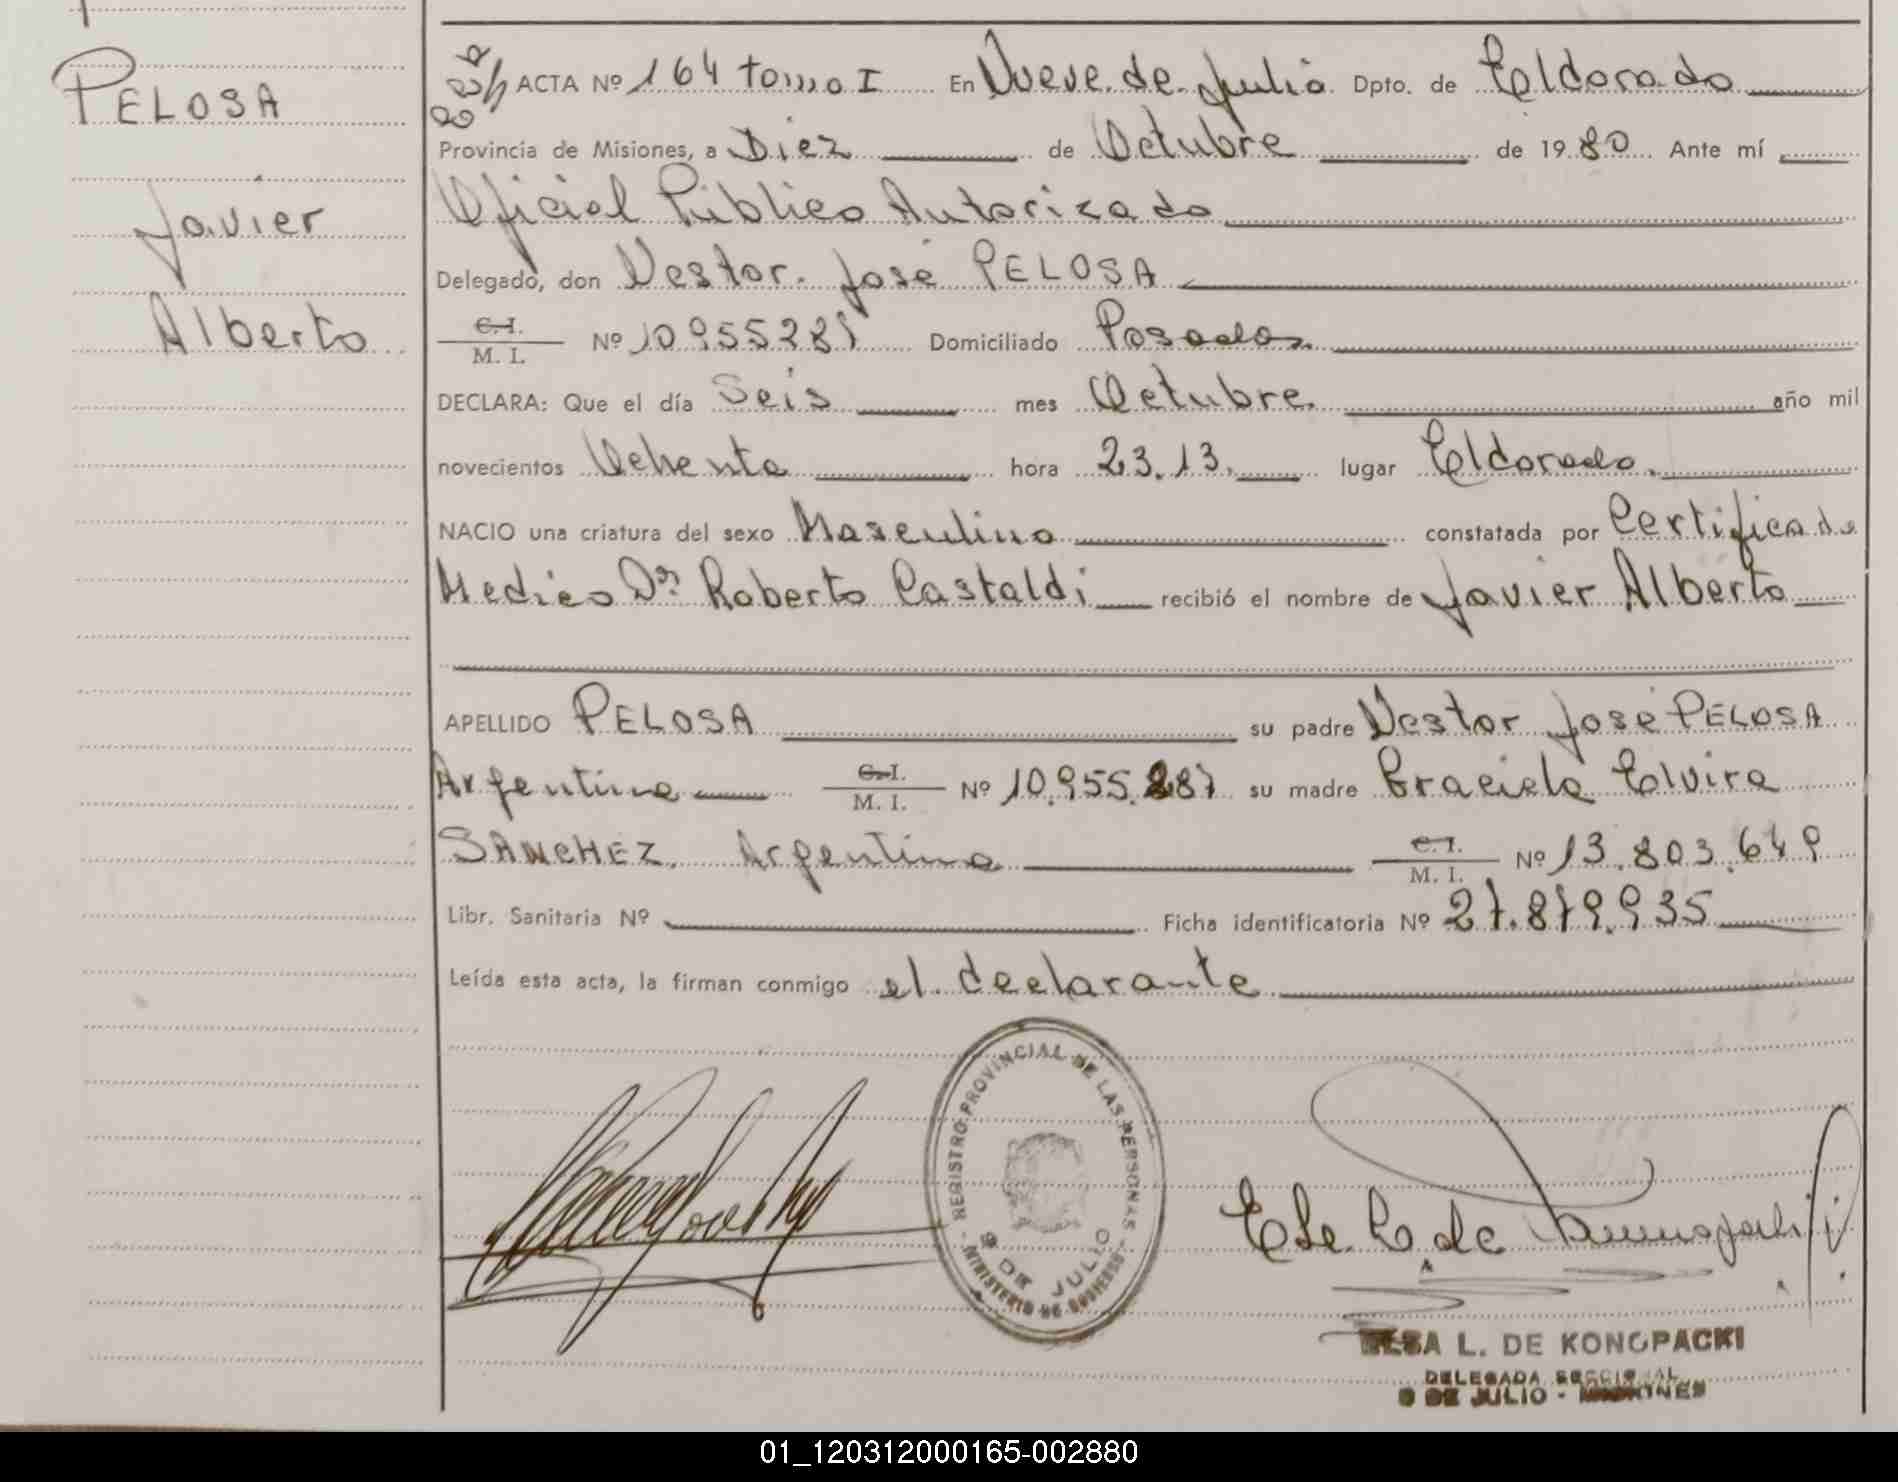 PELOSA
Javier
Alberto
ACTA Nº 164 tomo I En Nueve de Julio Dpto. de Eldorado
Provincia de Misiones, a Diez de Octubre de 1980 Ante mí
Oficial Público Autorizado
Delegado, don Nestor José PELOSA
C.I.
M. I. Nº 10955287 Domiciliado Posadas
DECLARA: Que el día Seis mes Octubre año mil
novecientos Ochenta hora 23.13. lugar Eldorado.
NACIO una criatura del sexo Masculino constatada por Certificado
Medico Dr. Roberto Castaldi recibió el nombre de Javier Alberto
APELLIDO PELOSA su padre Nestor José PELOSA
Argentino C.I. M. I. Nº 10.955.287 su madre Graciela Elvira
SANCHEZ. Argentina C.I. M. I. Nº 13.803.649
Libr. Sanitaria Nº Ficha identificatoria Nº 27.879.935
Leída esta acta, la firman conmigo el declarante
REGISTRO PROVINCIAL DE LAS PERSONAS
9 DE JULIO
MINISTERIO DE GOBIERNO
ELSA L. DE KONOPACKI
DELEGADA SECCIONAL
9 DE JULIO - MISIONES
01_120312000165-002880